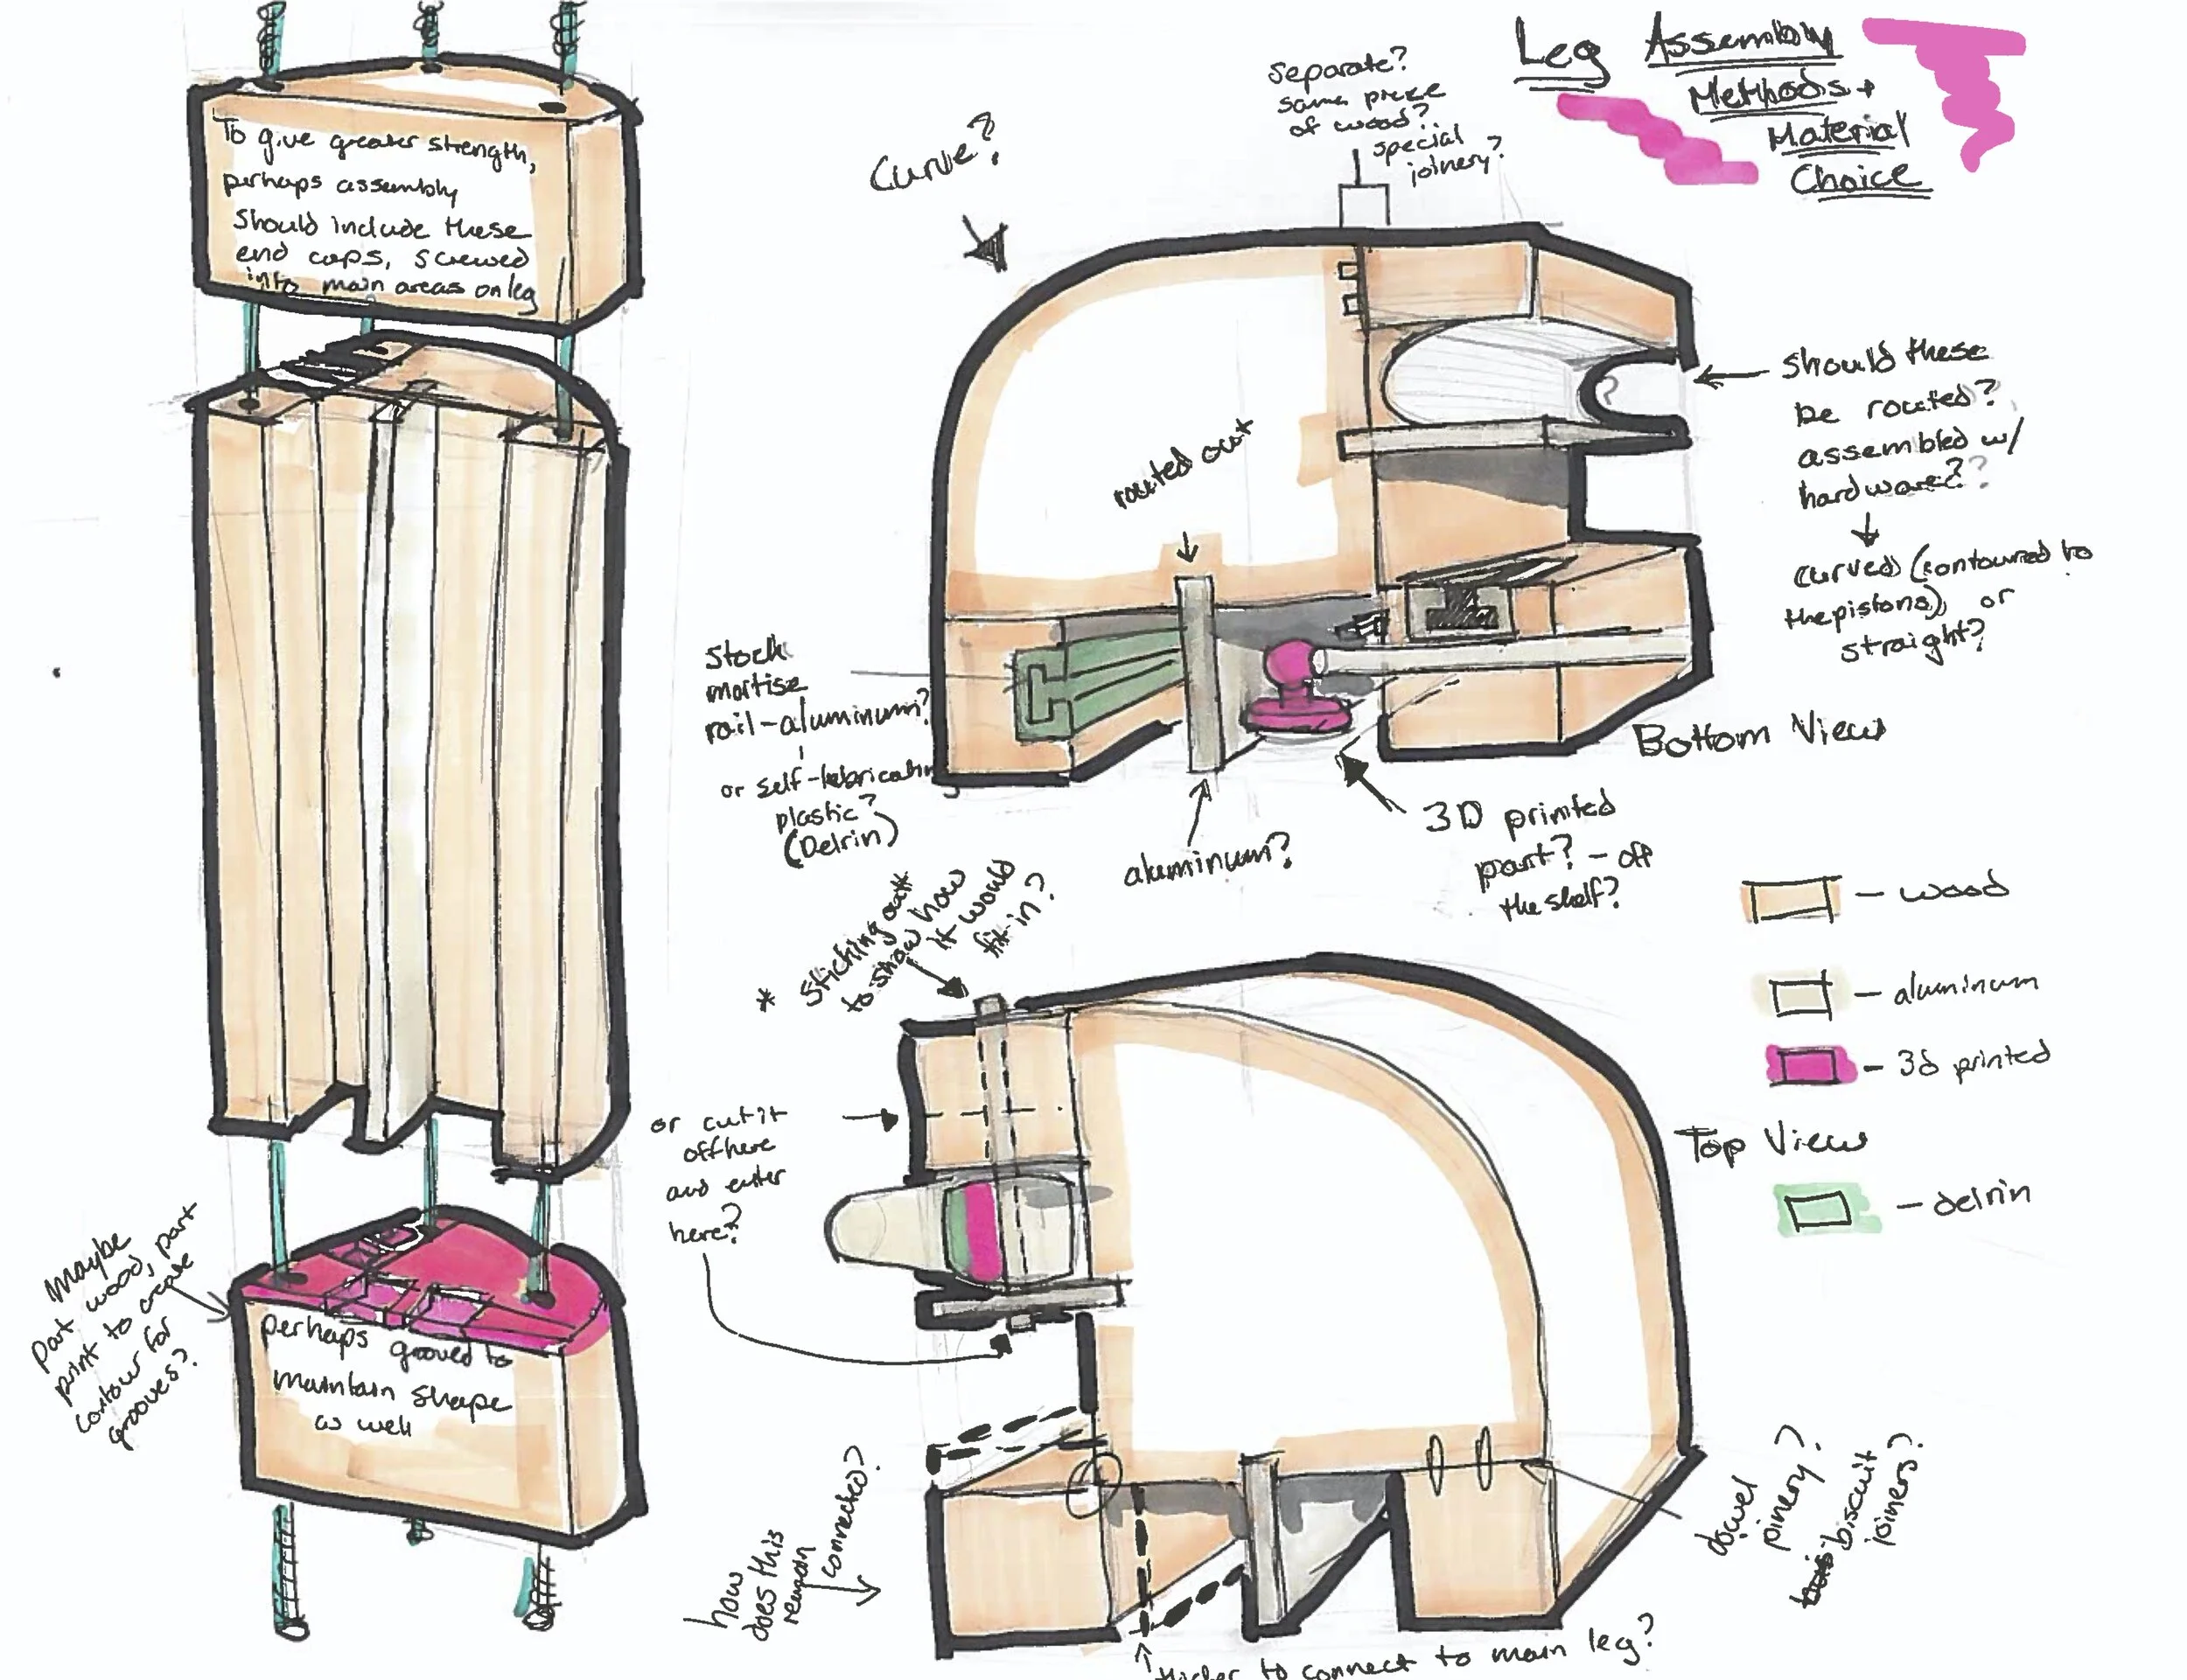 Leg Assembly
Methods +
Material
Choice
To give greater strength,
perhaps assembly
should include these
end caps, screwed
into main areas on leg
Curve?
Separate?
same piece
of wood?
special
joinery?
routed out
should these
be routed?
assembled w/
hardware??
curved (contoured to
the pistons), or
straight?
Stock
mortise
rail - aluminum?
or self-lubricatin
plastic?
(Delrin)
Bottom View
aluminum?
3D printed
part? - off
the shelf?
* Sticking out
to show how
it would
fit in?
- wood
- aluminum
- 3d printed
Top View
- delrin
or cut it
off here
and enter
here?
Maybe
part wood, part
print to create
contour for
grooves?
perhaps grooved to
maintain shape
as well
how
does this
remain
connected?
dowel
joinery?
biscuit
joiners?
thicker to connect to main leg?